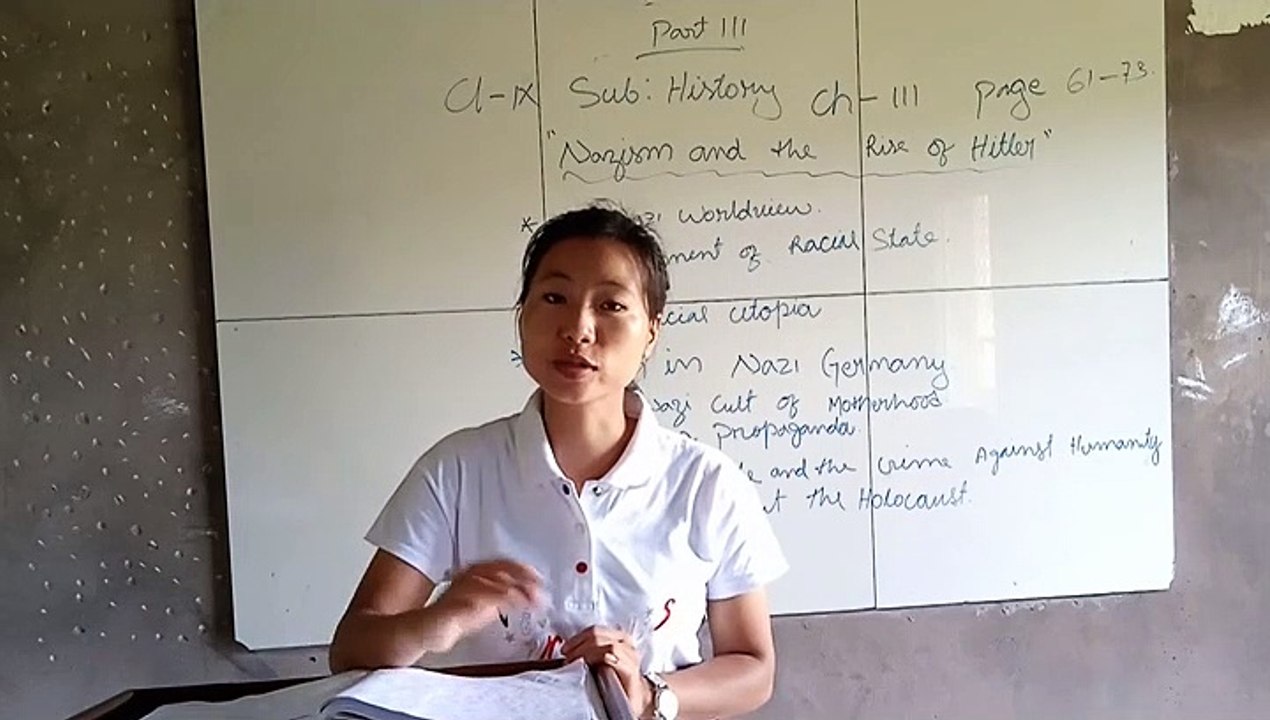 Part III
Cl-IX Sub: History Ch-III page 61-73.
"Nazism and the Rise of Hitler"
* Worldview.
of Racial State.
utopia
* in Nazi Germany
Cult of Motherhood
Propaganda.
and the Crime Against Humanity
the Holocaust.